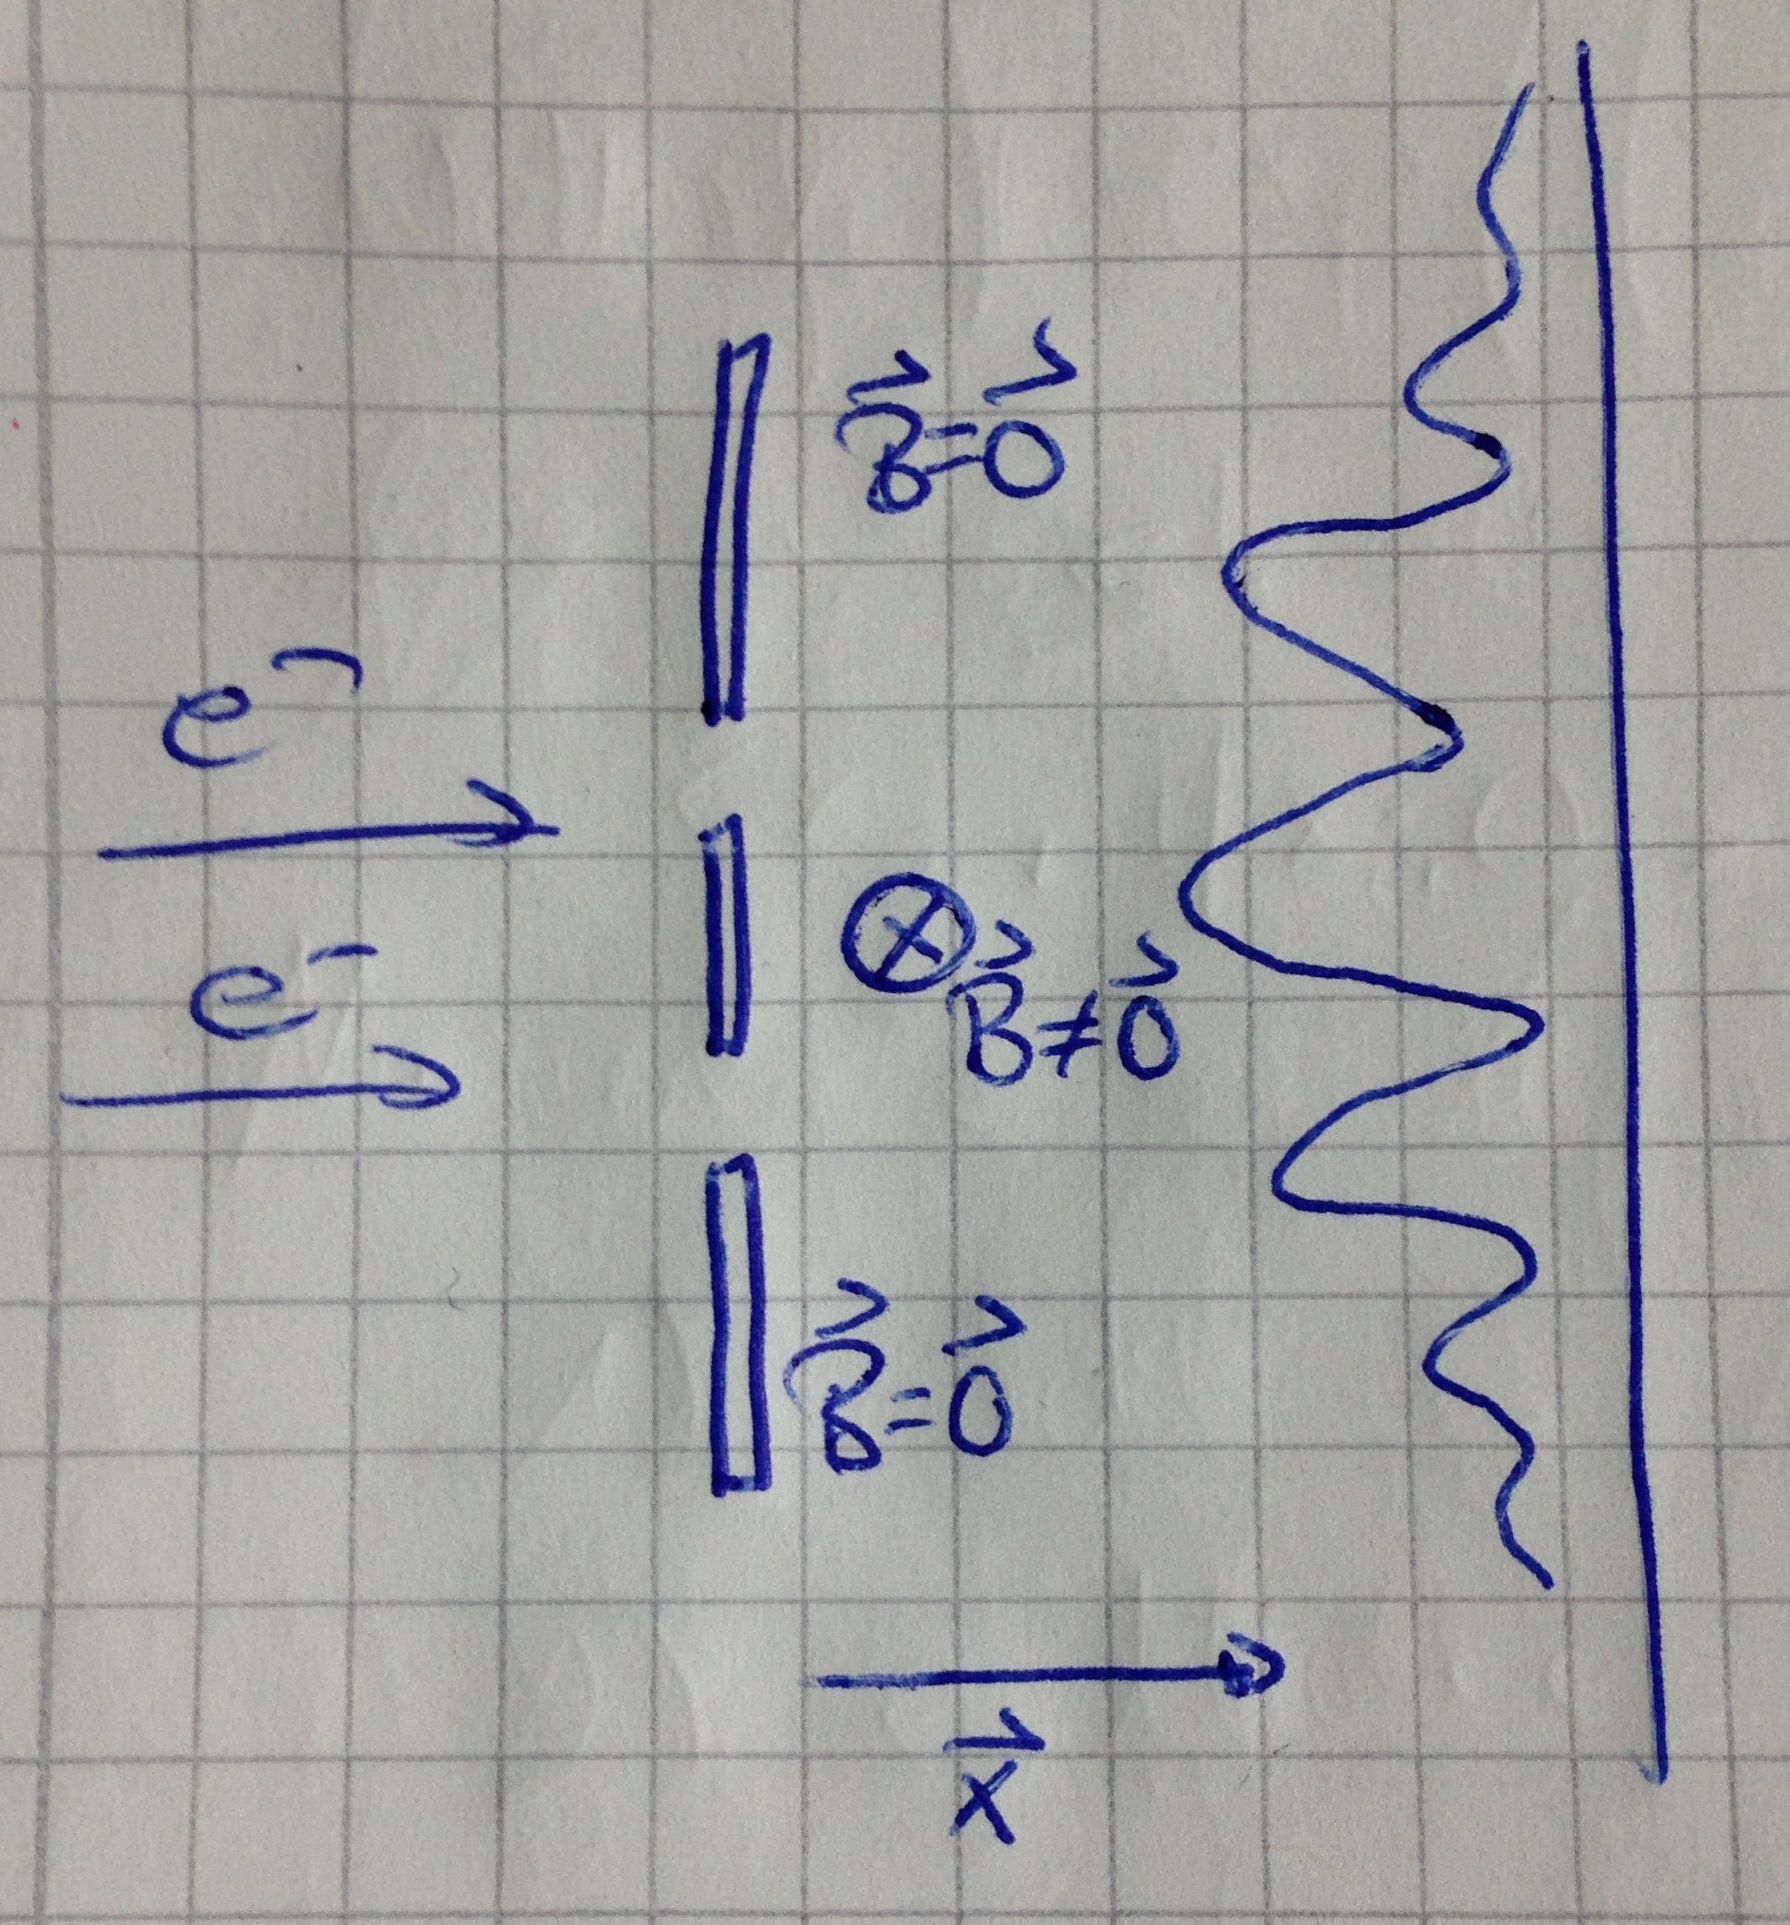 B⃗=0⃗
e⁻
e⁻
B⃗≠0⃗
B⃗=0⃗
x⃗